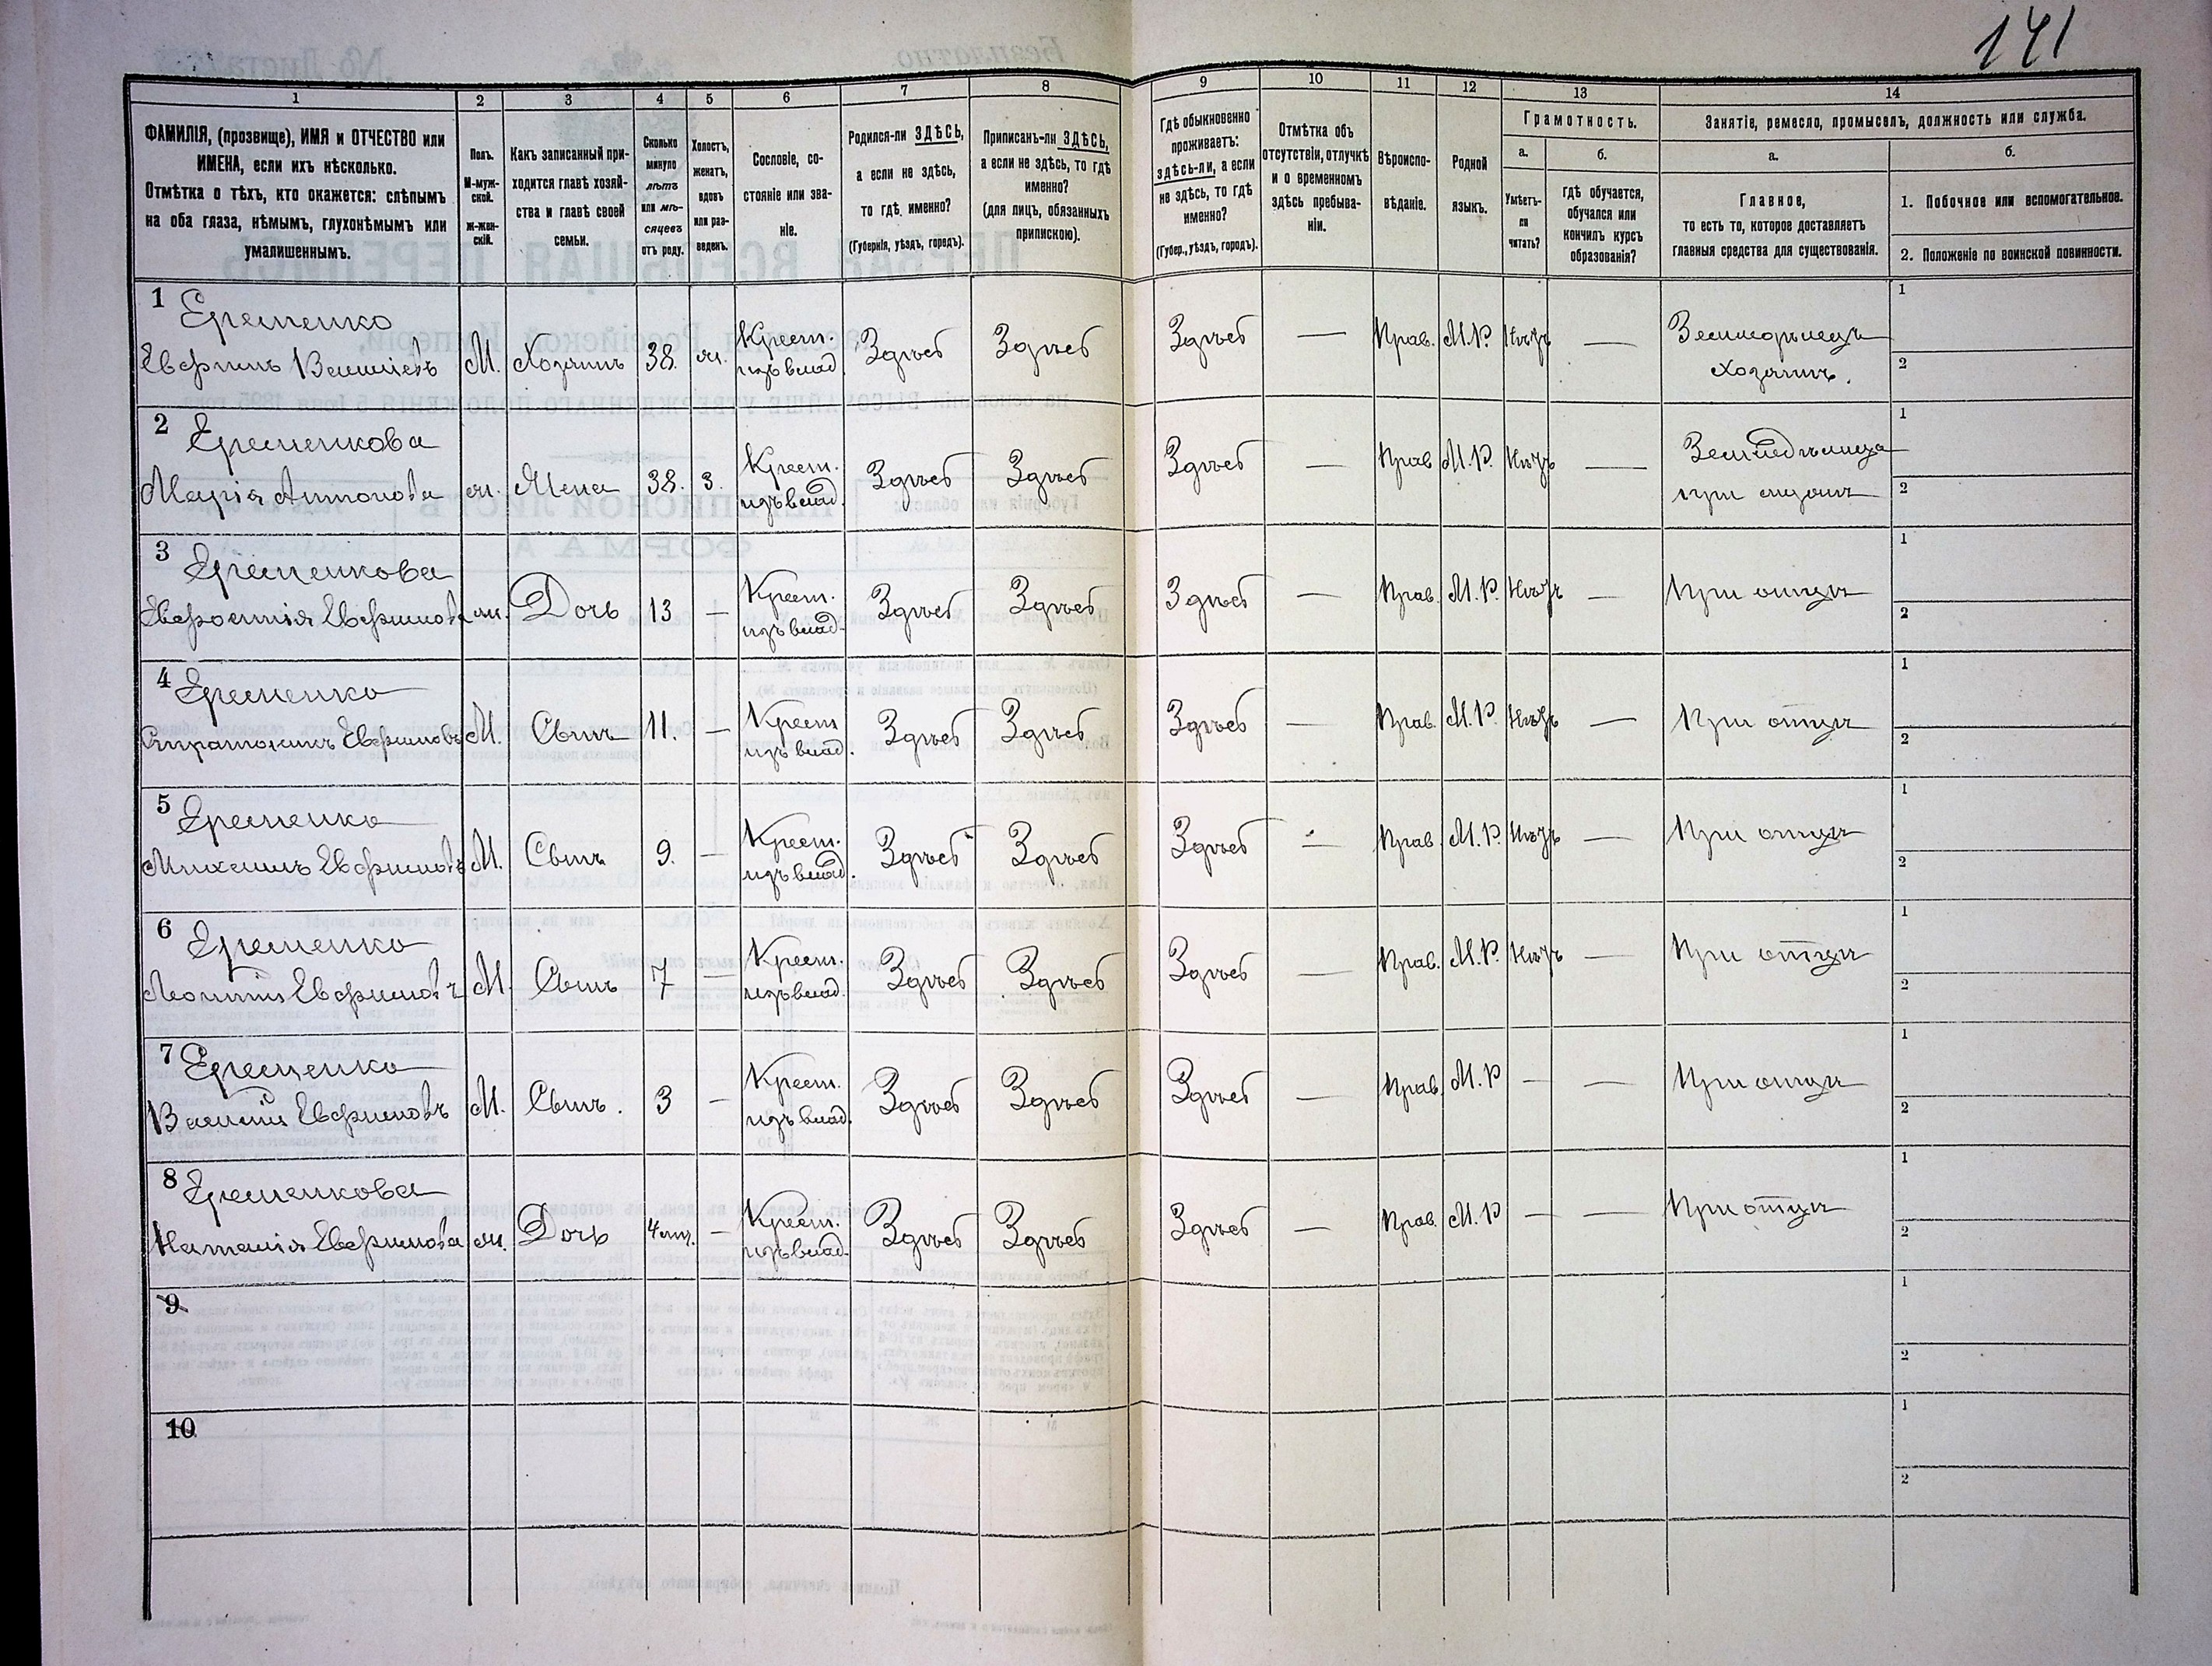 141
1
2
3
4
5
6
7
8
9
10
11
12
13
14
ФАМИЛІЯ, (прозвище), ИМЯ и ОТЧЕСТВО или
ИМЕНА, если ихъ нѣсколько.
Отмѣтка о тѣхъ, кто окажется: слѣпымъ
на оба глаза, нѣмымъ, глухонѣмымъ или
умалишеннымъ.
Полъ.
М-муж-
ской.
Ж-жен-
скій.
Какъ записанный при-
ходится главѣ хозяй-
ства и главѣ своей
семьи.
Сколько
минуло
лѣтъ
или мѣ-
сяцевъ
отъ роду.
Холостъ,
женатъ,
вдовъ
или раз-
веденъ.
Сословіе, со-
стояніе или зва-
ніе.
Родился-ли ЗДѢСЬ,
а если не здѣсь,
то гдѣ именно?
(Губернія, уѣздъ, городъ).
Приписанъ-ли ЗДѢСЬ,
а если не здѣсь, то гдѣ
именно?
(для лицъ, обязанныхъ
припискою).
Гдѣ обыкновенно
проживаетъ:
здѣсь-ли, а если
не здѣсь, то гдѣ
именно?
(Губер., уѣздъ, городъ).
Отмѣтка объ
отсутствіи, отлучкѣ
и о временномъ
здѣсь пребыва-
ніи.
Вѣроиспо-
вѣданіе.
Родной
языкъ.
Грамотность.
а.
Умѣетъ-
ли
читать?
б.
гдѣ обучается,
обучался или
кончилъ курсъ
образованія?
Занятіе, ремесло, промыселъ, должность или служба.
а.
Главное,
то есть то, которое доставляетъ
главныя средства для существованія.
б.
1. Побочное или вспомогательное.
2. Положеніе по воинской повинности.
1 Еременко
Евфимъ М. Хозяинъ 38. ж. Крест. Здѣсь Здѣсь Здѣсь — Прав. М.Р. Нѣтъ — Земледѣлецъ 1
изъ влад. Хозяинъ. 2
2 Еременкова
Марія Антонова ж. Жена 38. з. Крест. Здѣсь Здѣсь Здѣсь — Прав М.Р. Нѣтъ — Земледѣлица 1
изъ влад. при 2
3 Еременкова
Евфросинія Евфимова ж. Дочь 13 — Крест. Здѣсь Здѣсь Здѣсь — Прав. М.Р. Нѣтъ — При отцѣ 1
изъ влад. 2
4 Еременко
Евфимовъ М. Сынъ 11. — Крест Здѣсь Здѣсь Здѣсь — Прав. М.Р. Нѣтъ — При отцѣ 1
изъ влад. 2
5 Еременко
Михаилъ Евфимовъ М. Сынъ 9. — Крест. Здѣсь Здѣсь Здѣсь — Прав. М.Р. Нѣтъ — При отцѣ 1
изъ влад. 2
6 Еременко
Леонтій Евфимовъ М. Сынъ 7 — Крест. Здѣсь Здѣсь Здѣсь — Прав. М.Р. Нѣтъ — При отцѣ 1
изъ влад. 2
7 Еременко
Василій Евфимовъ М. Сынъ. 3 — Крест. Здѣсь Здѣсь Здѣсь — Прав. М.Р — — При отцѣ 1
изъ влад. 2
8 Еременкова
Наталія Евфимова ж. Дочь 4 — Крест. Здѣсь Здѣсь Здѣсь — Прав. М.Р — — При отцѣ 1
изъ влад. 2
9 1
2
10 1
2